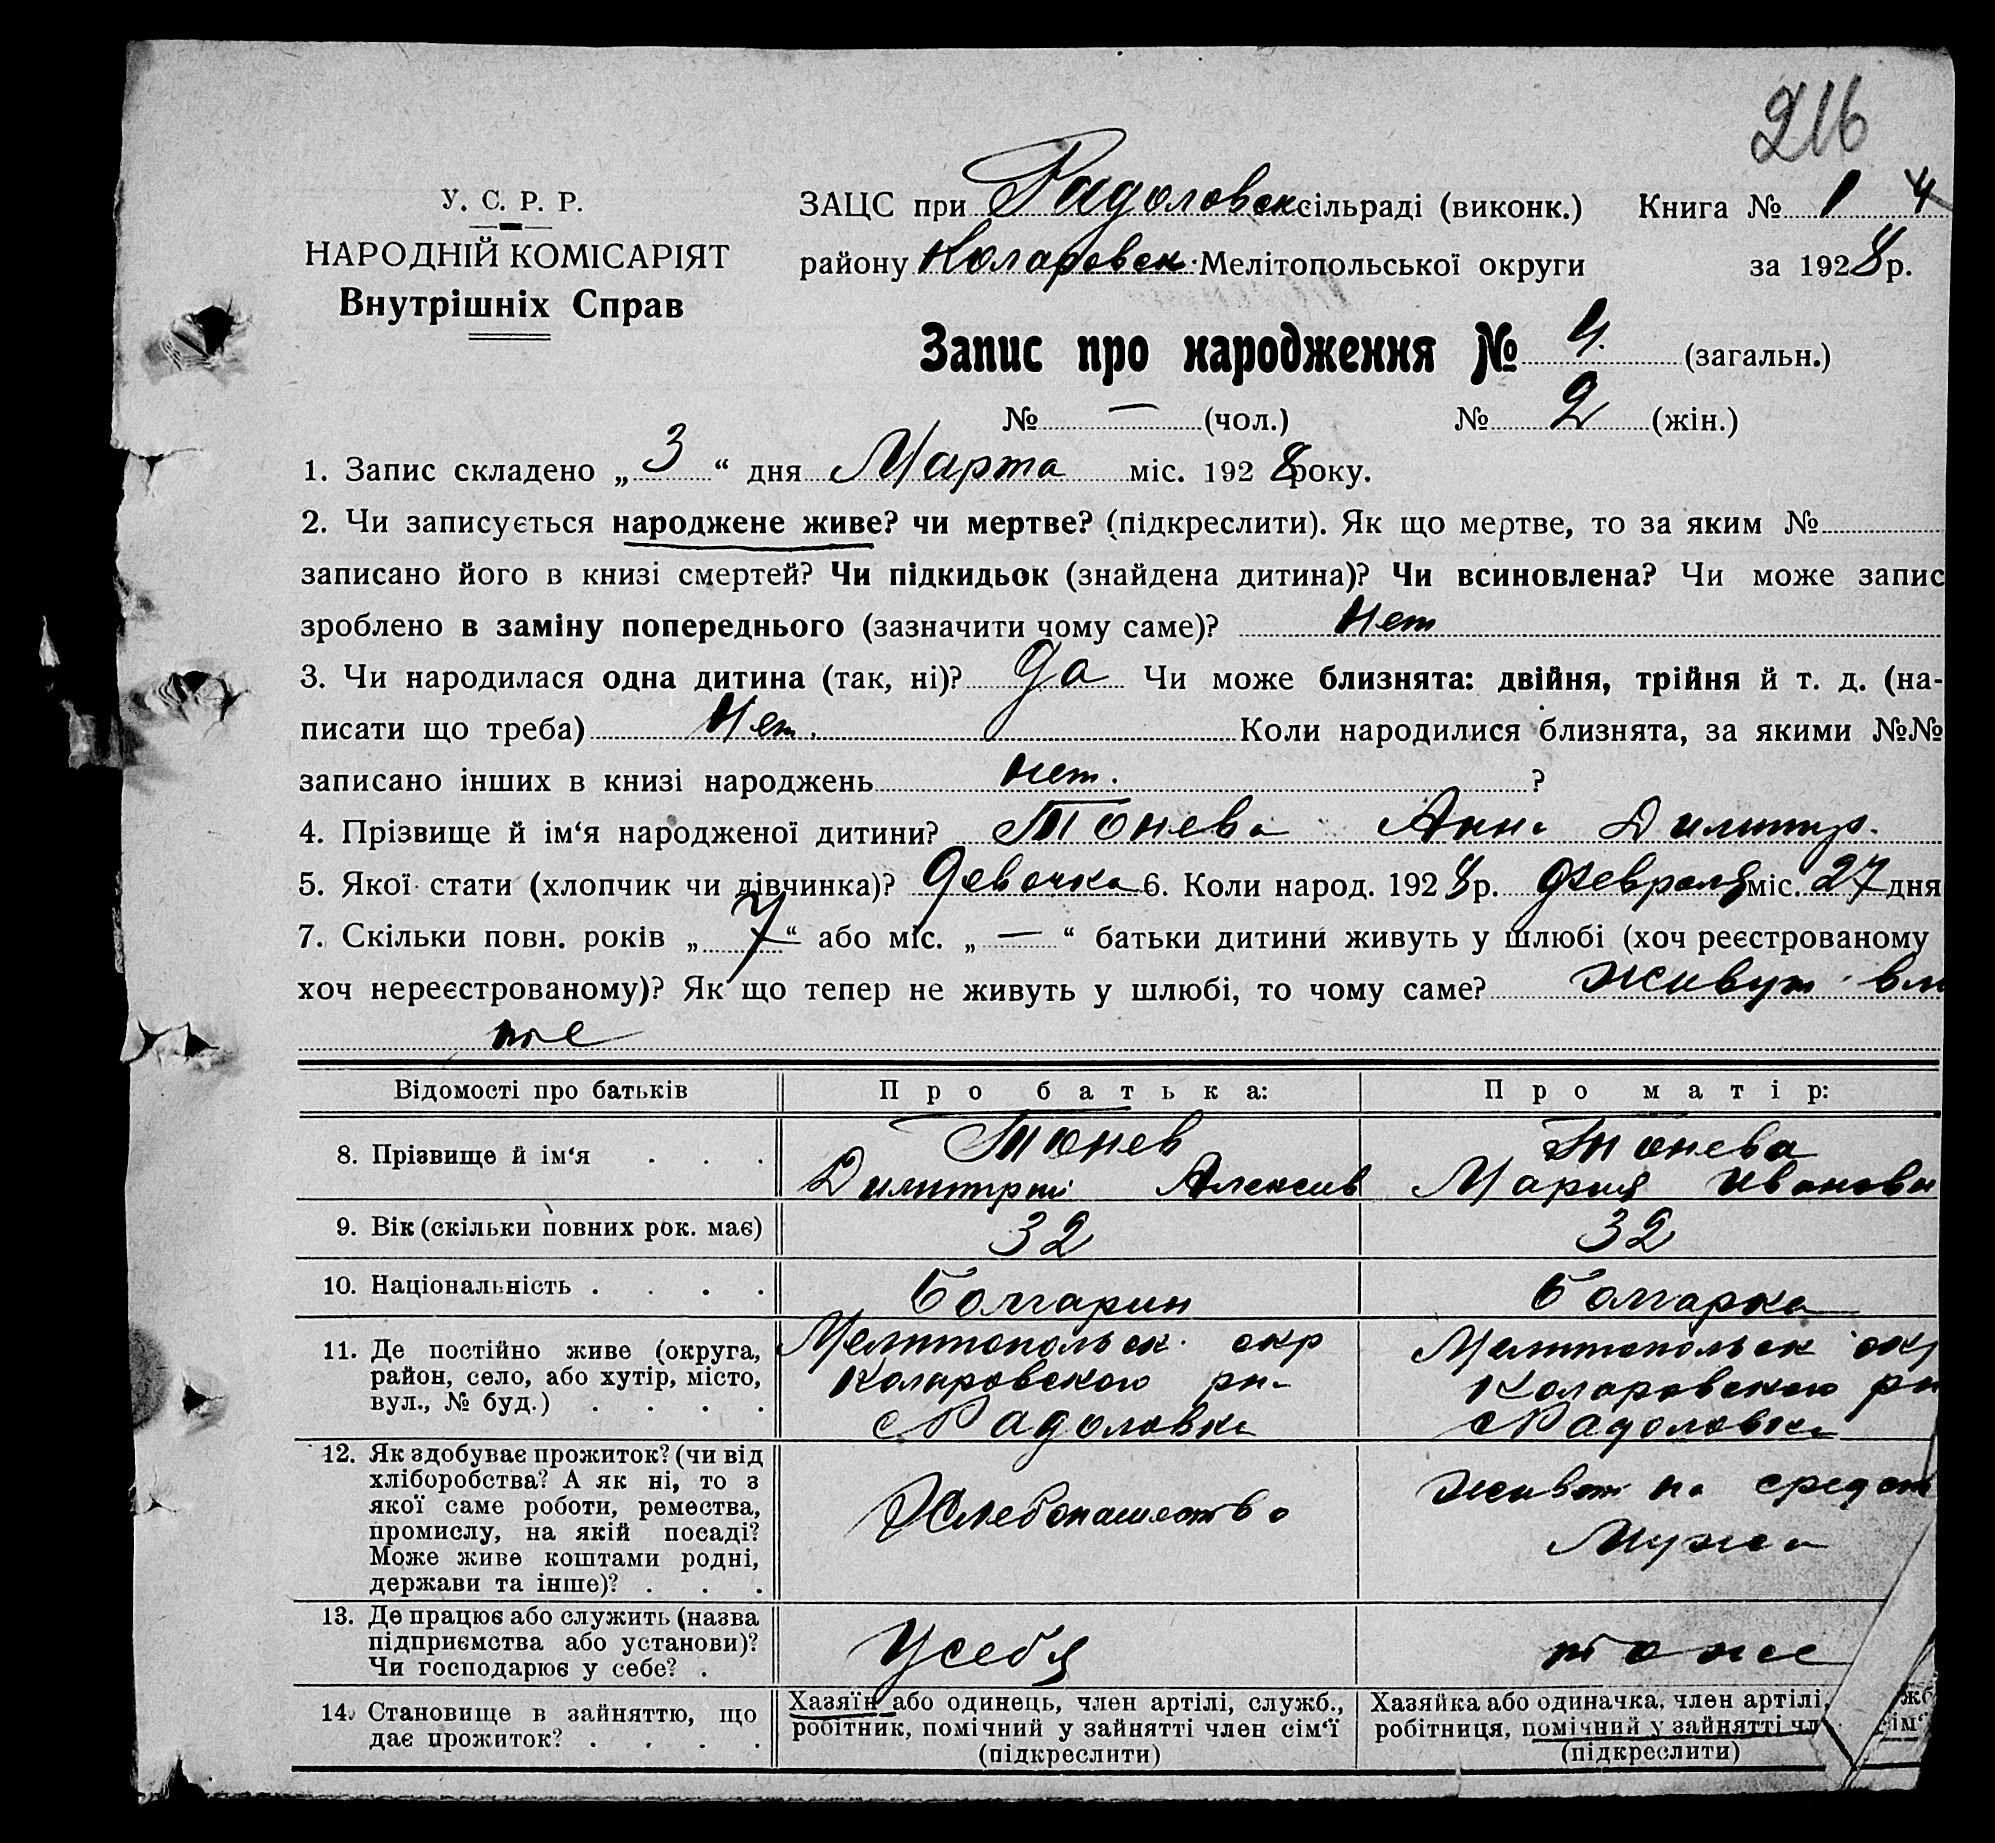 216
У. С. Р. Р.
НАРОДНІЙ КОМІСАРІЯТ
Внутрішніх Справ
ЗАЦС при Радоловск сільраді (виконк.) Книга № 1 4
району Коларовск. Мелітопольської округи за 1928 р.
Запис про народження № 4. (загальн.)
№ — (чол.) № 2 (жін.)
1. Запис складено „ 3 “ дня Марта міс. 1928 року.
2. Чи записується народжене живе? чи мертве? (підкреслити). Як що мертве, то за яким №
записано його в книзі смертей? Чи підкидьок (знайдена дитина)? Чи всиновлена? Чи може запис
зроблено в заміну попереднього (зазначити чому саме)? Нет
3. Чи народилася одна дитина (так, ні)? Да Чи може близнята: двійня, трійня й т. д. (на-
писати що треба) Нет. Коли народилися близнята, за якими №№
записано інших в книзі народжень нет. ?
4. Прізвище й ім‘я народженої дитини? Тонева Анна Димитр.
5. Якої стати (хлопчик чи дівчинка)? Девочка 6. Коли народ. 1928 р. Февраля міс. 27 дня
7. Скільки повн. років „ 7 “ або міс. „ — “ батьки дитини живуть у шлюбі (хоч реєстрованому
хоч нереєстрованому)? Як що тепер не живуть у шлюбі, то чому саме? живут вм
те
Відомості про батьків Про батька: Про матір:
8. Прізвище й ім‘я . . . Тонев Димитрий Алексив Тонева Мария Ивановн
9. Вік (скільки повних рок. має) 32 32
10. Національність . . . . Болгарин Болгарка
11. Де постійно живе (округа, Мелитопольск. окр Мелитопольск окр
район, село, або хутір, місто, Коларовского рн- Коларовского рн
вул., № буд.) . . . . с Радоловка с Радоловка
12. Як здобуває прожиток? (чи від
хліборобства? А як ні, то з Живет на средст
якої саме роботи, ремества, Хлебопашество
промислу, на якій посаді? Мужа
Може живе коштами родні,
держави та інше)? . . .
13. Де працює або служить (назва
підприємства або установи)? У себя тоже
Чи господарює у себе? .
14. Становище в зайняттю, що Хазяїн або одинець, член артілі, служб., Хазяйка або одиначка, член артілі, жб
дає прожиток? . . . . робітник, помічний у зайнятті член сім‘ї робітниця, помічний у зайнятті чл ім‘
(підкреслити) (підкреслити)